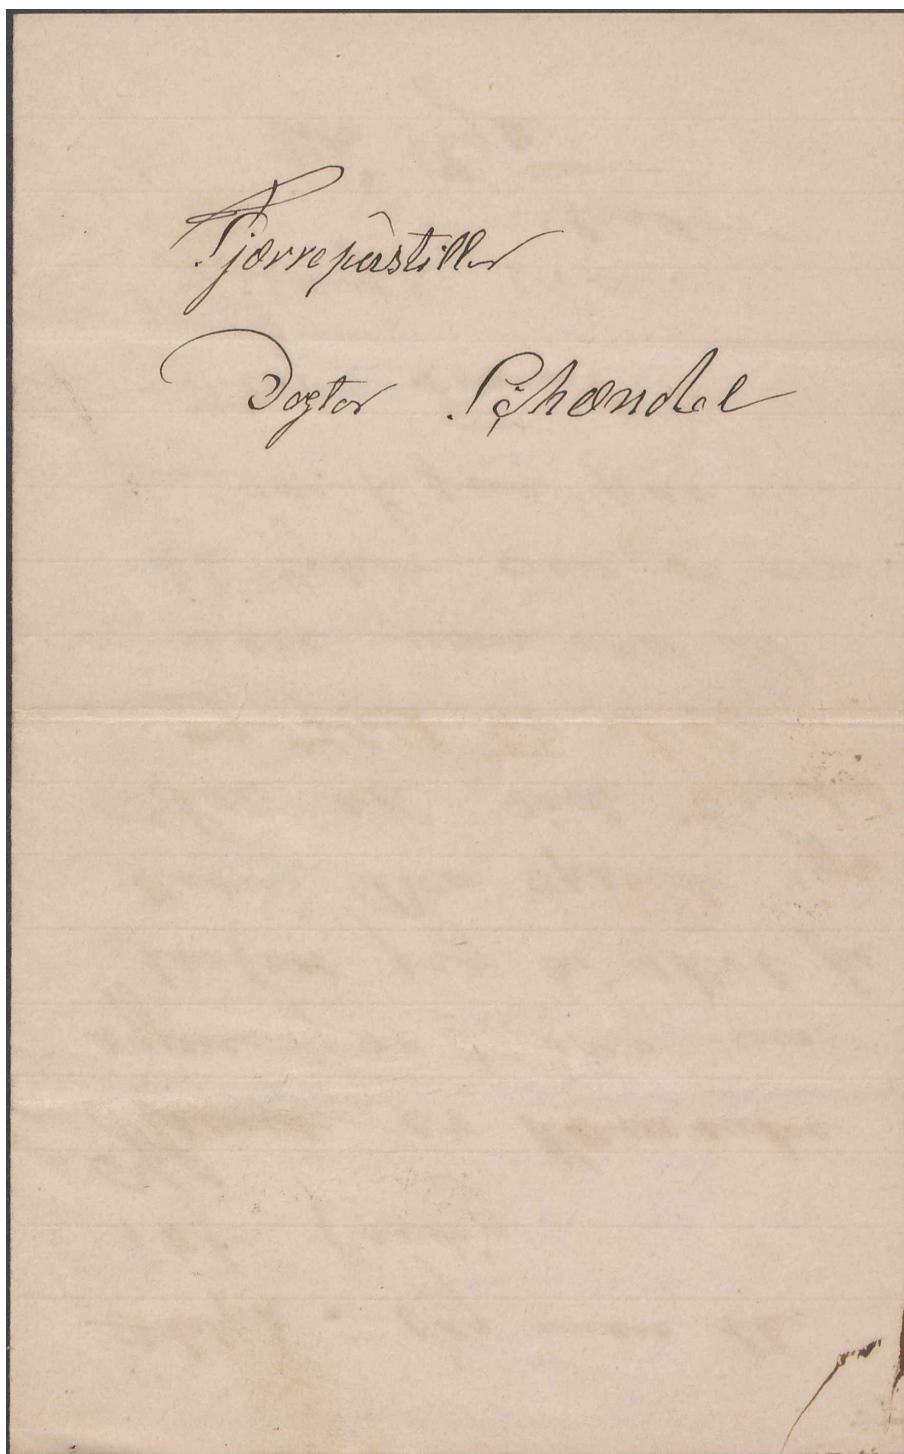 Tjærrepastiller
Dogtor Schændel